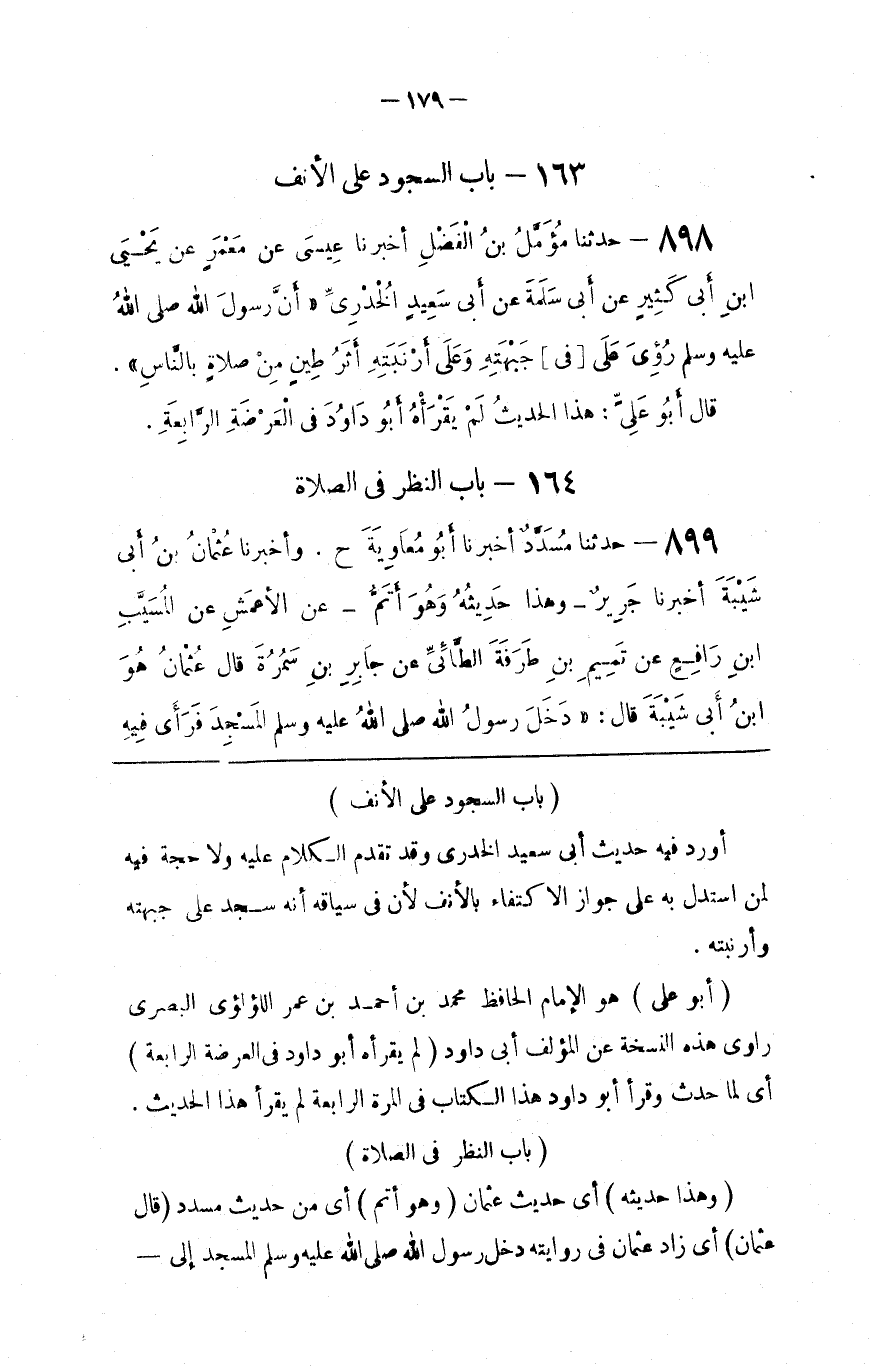 — ١٧٩ —
١٦٣ — باب السجود على الأنف
٨٩٨ — حدثنا مُؤَمَّلُ بنُ الْفَضْلِ أخبرنا عِيسَى عن مَعْمَرٍ عن يَحْيَى
ابنِ أَبى كَثِيرٍ عن أَبى سَلَمَةَ عن أَبى سَعِيدٍ الْخُدْرِىِّ « أَنَّ رسولَ الله صلى اللهُ
عليه وسلم رُؤِىَ عَلَى [ فى ] جَبْهَتِهِ وَعَلَى أَرْنَبَتِهِ أَثَرُ طِينٍ مِنْ صلاةٍ بالنَّاسِ» .
قال أَبُو عَلِىٍّ : هذا الحديثُ لَمْ يَقْرَأْهُ أَبُو دَاوُدَ فى الْعَرْضَةِ الرَّابِعَةِ .
١٦٤ — باب النظر فى الصلاة
٨٩٩ — حدثنا مُسَدَّدٌ أخبرنا أَبُو مُعَاوِيَةَ ح . وأخبرنا عُثْمانُ بنُ أَبى
شَيْبَةَ أخبرنا جَرِيرٌ ــ وهذا حَدِيثُهُ وَهُوَ أَتَمُّ ــ عن الأعمَشِ عن المُسَيَّبِ
ابنِ رَافِعٍ عن تَمِيمِ بنِ طَرَفَةَ الطَّائِىِّ عن جابِرِ بنِ سَمُرَةَ قال عُثْمانُ هُوَ
ابنُ أَبى شَيْبَةَ قال : « دَخَلَ رسولُ الله صلى اللهُ عليه وسلم المَسْجِدَ فَرَأَى فِيهِ
( باب السجود على الأنف )
أورد فيه حديث أبى سعيد الخدرى وقد تقدم الكلام عليه ولا حجة فيه
لمن استدل به على جواز الاكتفاء بالأنف لأن فى سياقه أنه سجد على جبهته
وأرنبته .
( أبو على ) هو الإمام الحافظ محمد بن أحمد بن عمر اللؤلؤى البصرى
راوى هذه النسخة عن المؤلف أبى داود ( لم يقرأه أبو داود فى العرضة الرابعة )
أى لما حدث وقرأ أبو داود هذا الكتاب فى المرة الرابعة لم يقرأ هذا الحديث .
( باب النظر فى الصلاة )
( وهذا حديثه ) أى حديث عثمان ( وهو أتم ) أى من حديث مسدد (قال
عثمان) أى زاد عثمان فى روايته دخل رسول الله صلى الله عليه وسلم المسجد إلى —